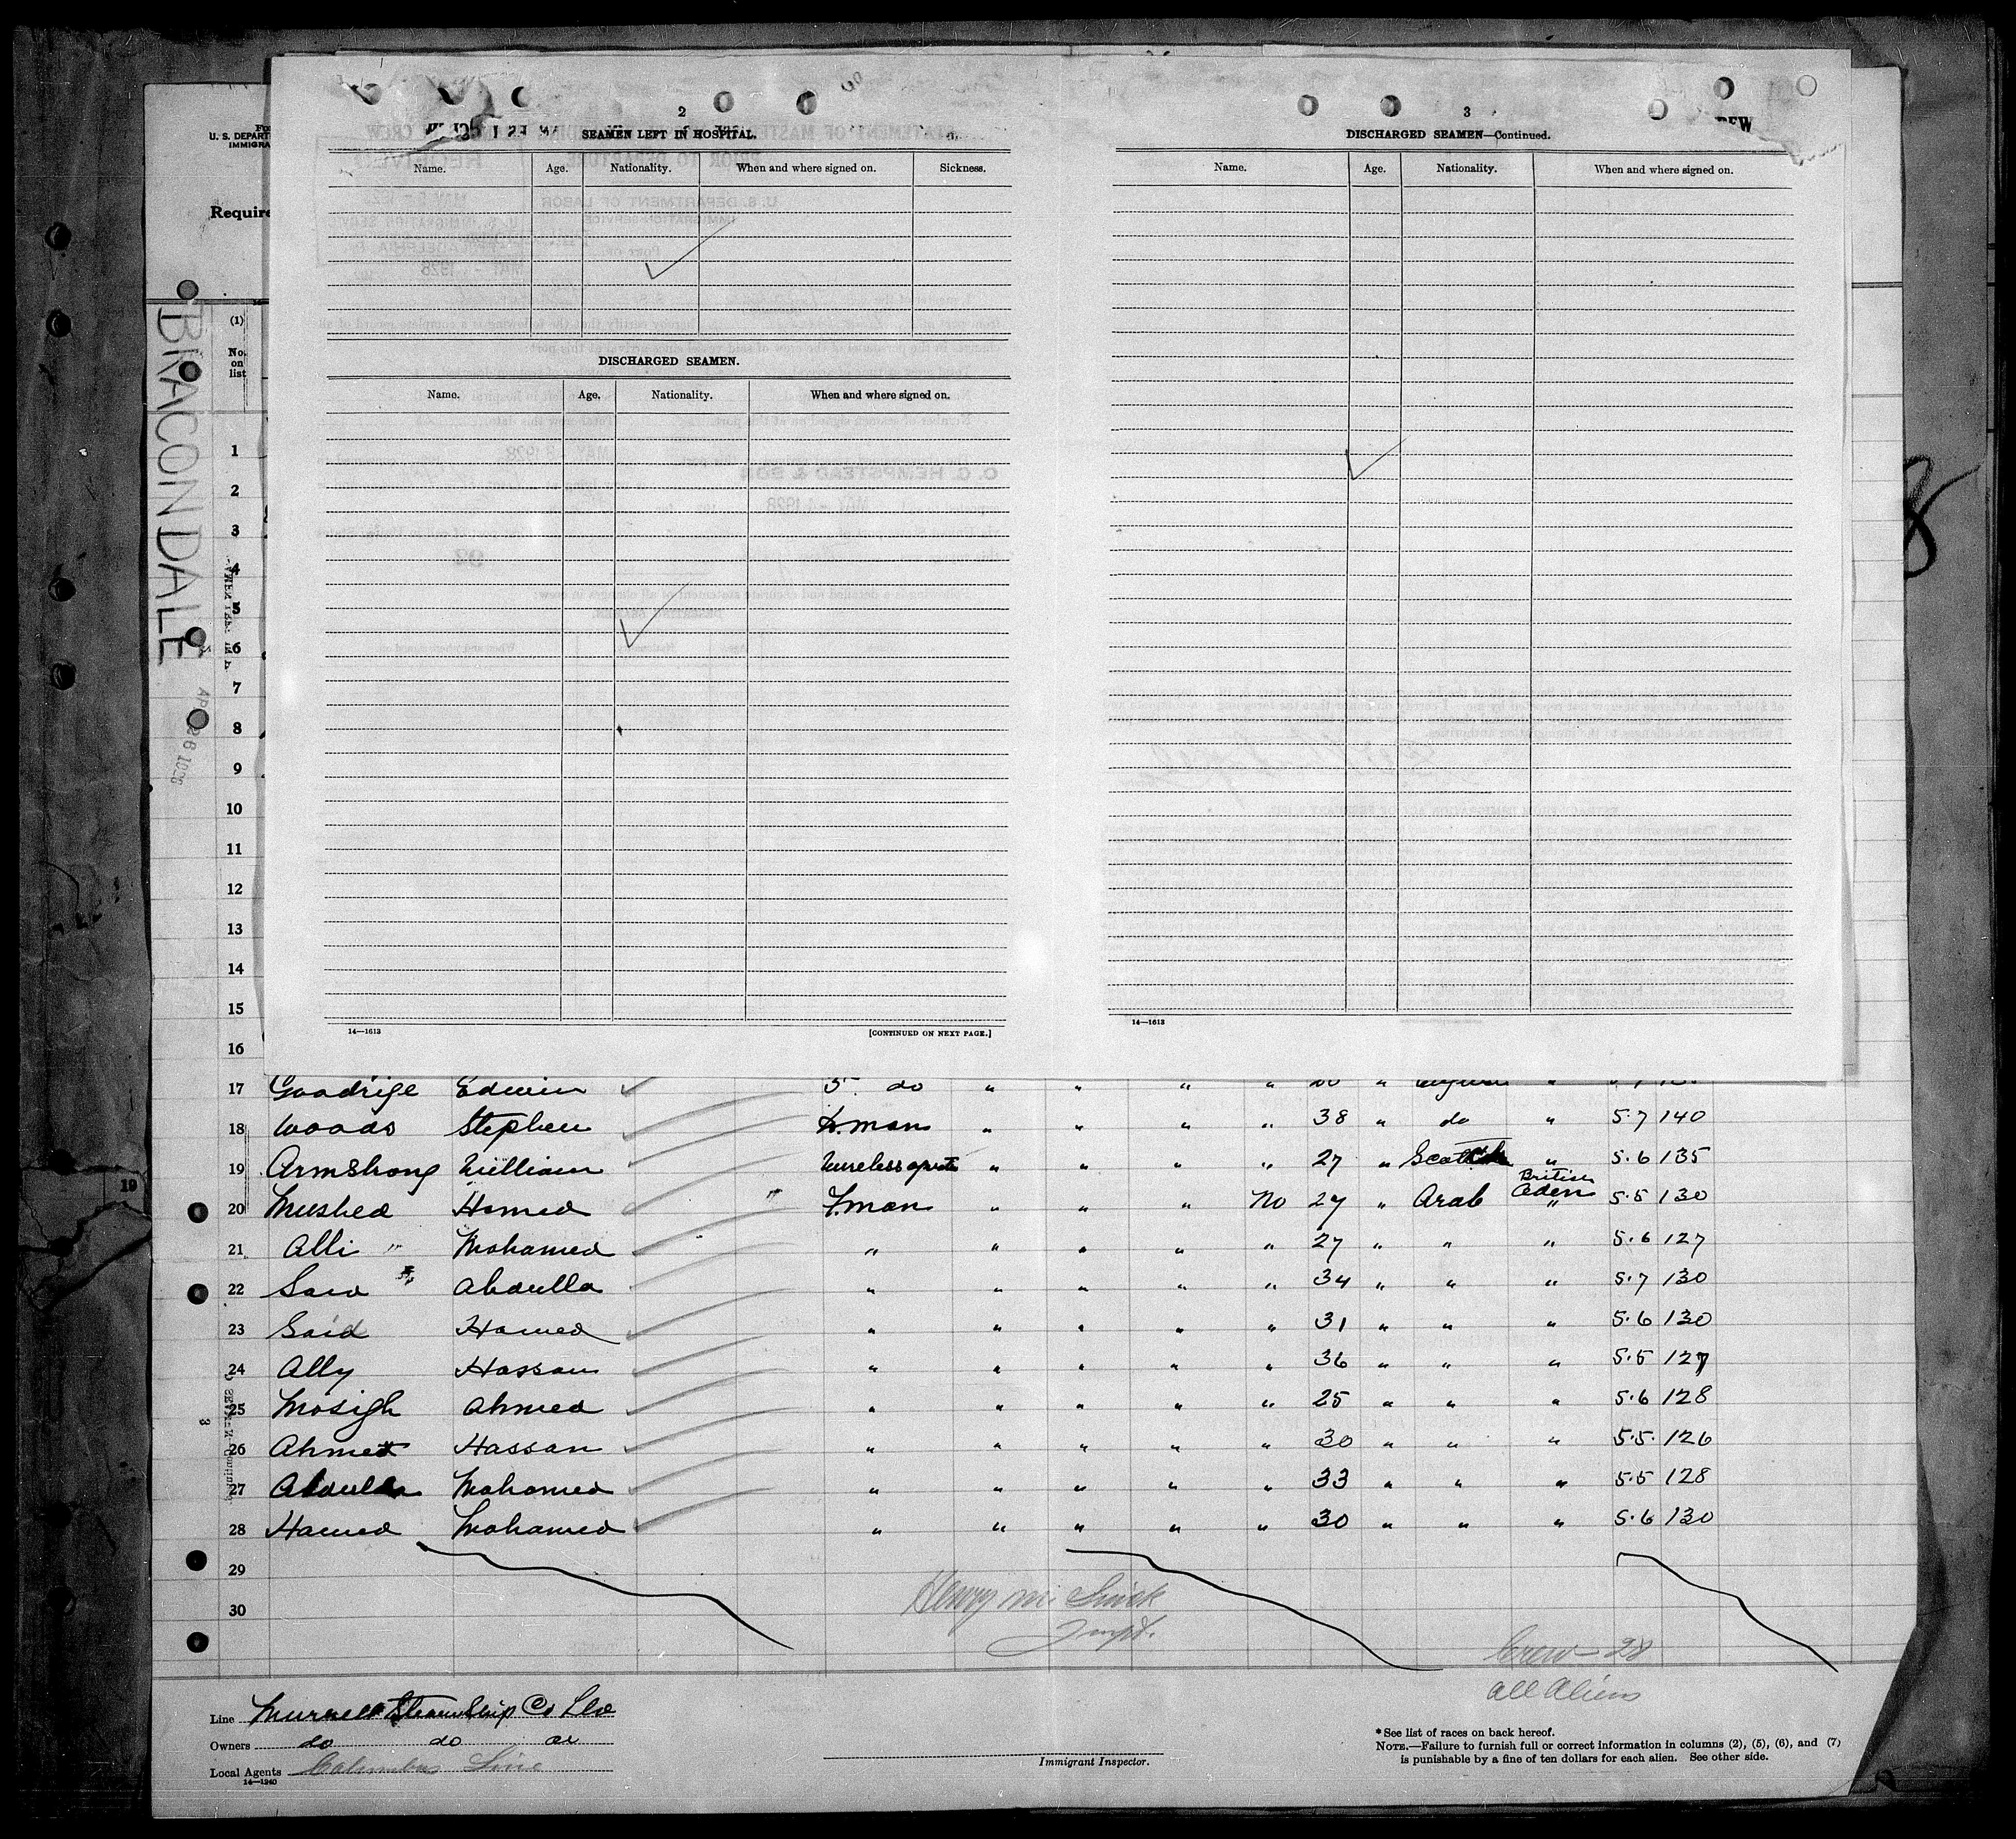 U. S. DEPART
IMMIGRA
Require
BRACONDALE
2
SEAMEN LEFT IN HOSPITAL.
Name. Age. Nationality. When and where signed on. Sickness.
DISCHARGED SEAMEN.
Name. Age. Nationality. When and where signed on.
14—1613 [CONTINUED ON NEXT PAGE.]
3
DISCHARGED SEAMEN—Continued.
Name. Age. Nationality. When and where signed on.
14—1613
(1)
No.
on
list
1
2
3
4
5
6
7
8
9
10
11
12
13
14
15
16
17 Goodrige Edwin do " " " " "
18 Woods Stephen " " " " 38 " do " 5.7 140
19 Armstrong William " " " " 27 " Scotch " 5.6 135
20 Mushed Hamed F.man " " " No 27 " Arab British Aden " 5.5 130
21 Alli " Mohamed " " " " " 27 " " " 5.6 127
22 Said Abdulla " " " " " 34 " " " 5.7 130
23 Said Hamed " " " " " 31 " " " 5.6 130
24 Ally Hassan " " " " " 36 " " " 5.5 127
25 Mosigh Ahmed " " " " " 25 " " " 5.6 128
26 Ahmet Hassan " " " " " 30 " " " 5.5. 126
27 Abdulla Mohamed " " " " " 33 " " " 5.5 128
28 Hamed Mohamed " " " " " 30 " " " 5.6 130
29
30
Crew—28
all Aliens
Line Murrell Steamship Co Ltd
Owners do do
Local Agents Columbus Line
14—1240
Immigrant Inspector.
* See list of races on back hereof.
NOTE.—Failure to furnish full or correct information in columns (2), (5), (6), and (7)
is punishable by a fine of ten dollars for each alien. See other side.